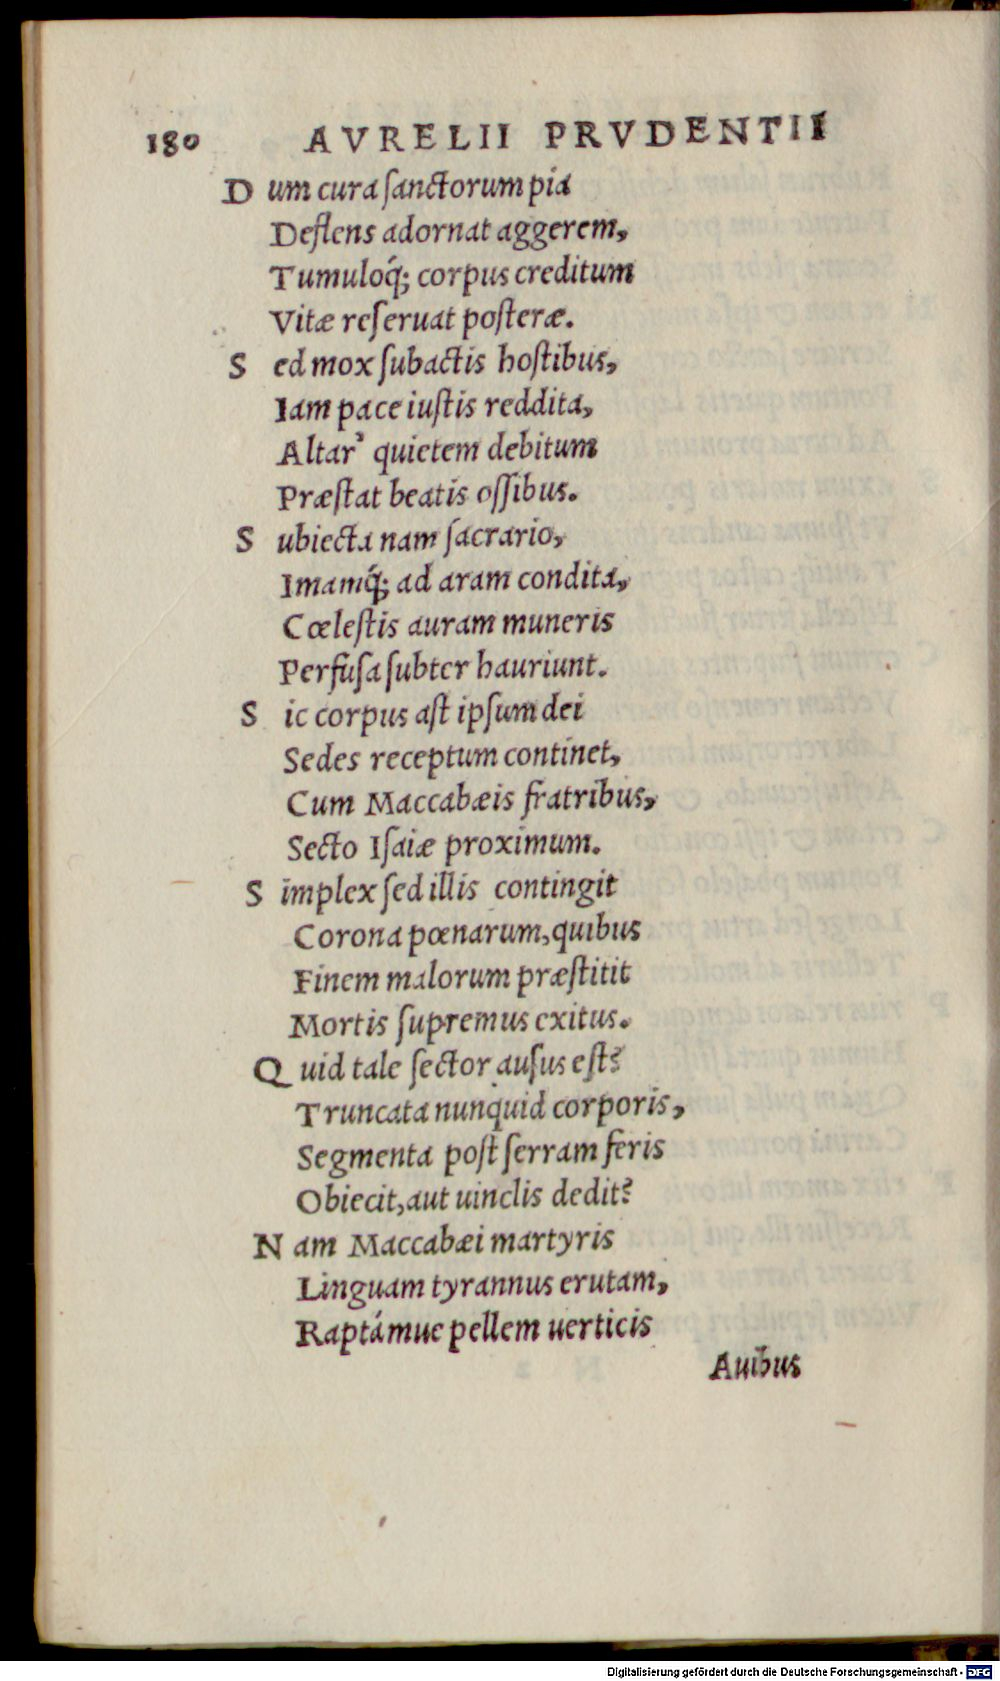 180 AVRELII PRVDENTII
D um cura ſanctorum pia
Deflens adornat aggerem,
Tumuloq́; corpus creditum
Vitæ reſeruat poſteræ.
S ed mox ſubactis hoſtibus,
Iam pace iuſtis reddita,
Altar' quietem debitum
Præſtat beatis oſſibus.
S ubiecta nam ſacrario,
Imamq́; ad aram condita,
Cœleſtis auram muneris
Perfuſa ſubter hauriunt.
S ic corpus aſt ipſum dei
Sedes receptum continet,
Cum Maccabæis fratribus,
Secto Iſaiæ proximum.
S implex ſed illis contingit
Corona pœnarum, quibus
Finem malorum præſtitit
Mortis ſupremus exitus.
Q uid tale ſector auſus eſt?
Truncata nunquid corporis,
Segmenta poſt ſerram feris
Obiecit, aut uinclis dedit?
N am Maccabæi martyris
Linguam tyrannus erutam,
Raptámue pellem uerticis
Auibus
Digitalisierung gefördert durch die Deutsche Forschungsgemeinschaft - DFG